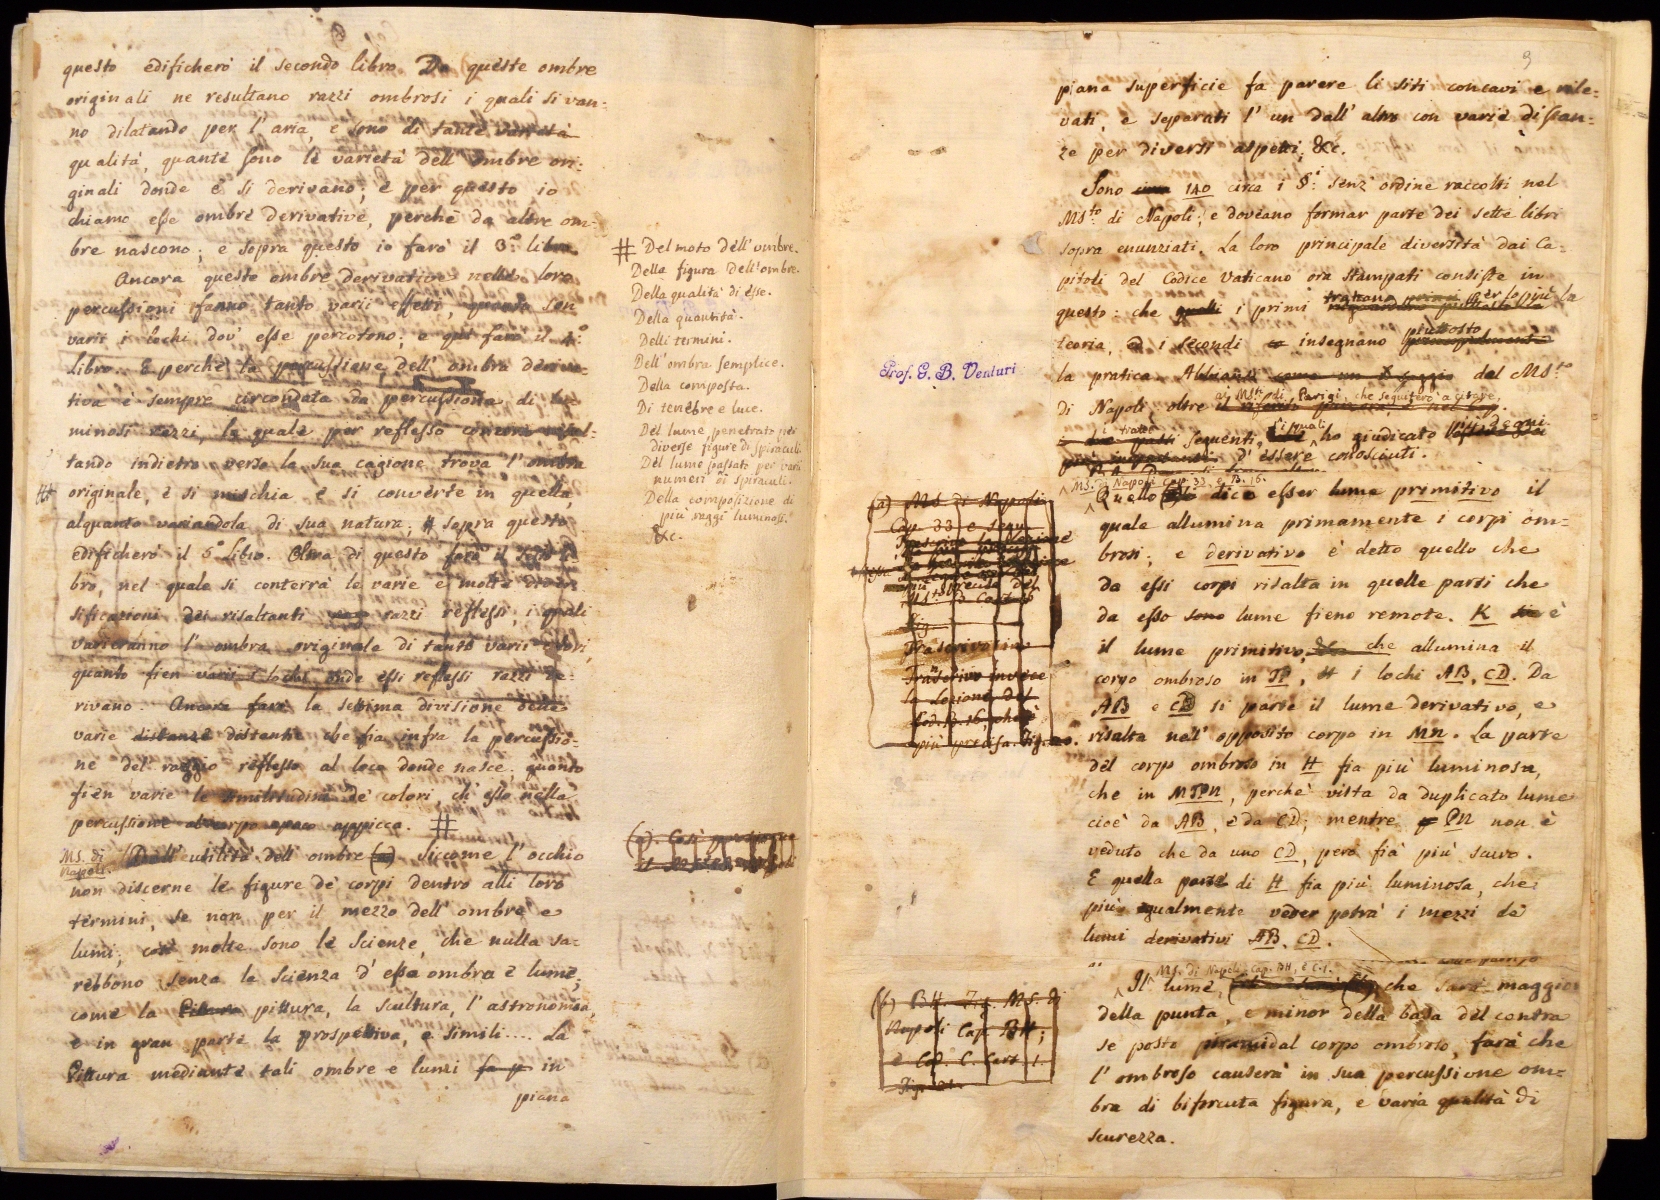 questo edificherò il secondo libro. Da queste ombre
originali ne resultano razzi ombrosi i quali si van-
no dilatando per l'aria, e sono di tante varietà
qualità, quante sono le varietà dell'ombre ori-
ginali donde e si derivano; e per questo io
chiamo esse ombre derivative, perchè da altre om-
bre nascono; e sopra questo io farò il 3.º libro.
Ancora queste ombre derivative nelle loro
percussioni fanno tanto varii effetti, quanto son
varii i lochi dov'esse percotono; e qui farò il 4º
libro. E perchè la percussione dell'ombra deriva-
tiva è sempre circondata da percussione di lu-
minosi razzi, la quale per reflesso
tando indietro verso la sua cagione trova l'ombra
originale, e si mischia e si converte in quella,
alquanto variandola di sua natura; sopra questo
edificherò il 5º libro. Oltra di questo farò il sesto li-
bro, nel quale si conterrà le varie e molte diver-
sificazioni dei risaltanti razzi reflessi, i quali
varieranno l'ombra originale di tanti varii colori,
quanto fien varii i lochi, onde essi reflessi razzi de-
rivano. Ancora farò la settima divisione delle
varie distanze distantie che fia infra la percussio-
ne del raggio reflesso al loco donde nasce, quanto
fien varie le similitudini de' colori, ch'esso nella
percussione al corpo opaco appicca. #
MS. di
Napoli.
Dell'utilità dell'ombre (a) Siccome l'occhio
non discerne le figure de' corpi dentro alli loro
termini, se non per il mezzo dell'ombre e
lumi; così molte sono le Scienze, che nulla sa-
rebbono senza la scienza d'essa ombra e lume;
come la Pittura pittura, la scultura, l'astronomia,
e in gran parte la prospettiva, e simili.... La
Pittura mediante tali ombre e lumi fa p in
piana
# Del moto dell'ombre.
Della figura dell'ombre.
Della qualità di esse.
Della quantità.
Delli termini.
Dell'ombra semplice.
Della composta.
Di tenebre e luce.
Del lume penetrato per
diverse figure di spiraculi.
Del lume passato per varii
numeri di spiraculi.
Della composizione di
più raggi luminosi.
&c.
9
piana superficie fa parere li siti concavi e rile-
vati, e separati l'un dall'altro con varie distan-
ze per diversi aspetti; &c.
Sono circa 140 circa i §.i senz'ordine raccolti nel
MSto di Napoli; e doveano formar parte dei sette libri
sopra enunziati. La loro principale diversità dai Ca-
pitoli del Codice Vaticano ora stampati consiste in
questo: che quelli i primi trattano per lo più la
teoria, i secondi insegnano piuttosto
la pratica. del MSto
di Napoli, oltre ai MSti di Parigi, che seguiterò a citare,
i tratti seguenti, li quali ho giudicato
d'essere conosciuti.
Prof. G. B. Venturi
MS. di Napoli Cap. 33, e B. 16.
Quello dico esser lume primitivo il
quale allumina primamente i corpi om-
brosi; e derivativo è detto quello che
da essi corpi risalta in quelle parti che
da esso sono lume sieno remote. K è
il lume primitivo, che allumina il
corpo ombroso in TP, i lochi AB, CD. Da
AB e CD si parte il lume derivativo, e
risalta nell'opposito corpo in MN. La parte
del corpo ombroso in H fia più luminosa,
che in MTPN, perchè vista da duplicato lume
cioè da AB, e da CD; mentre PN non è
veduto che da uno CD, però fia più scuro.
E quella parte di H fia più luminosa, che
più egualmente veder potrà i mezzi de'
lumi derivativi AB, CD.
MS. di Napoli Cap. BH, e C. 1.
Il lume, che sarà maggio
della punta, e minor della basa del contra
se posto piramidal corpo ombroso, farà che
l'ombroso causerà in sua percussione om-
bra di biforcuta figura, e varia qualità di
scurezza.
(a) MS di Napoli
Cap. 33 e segu.
Trascrivo in
Trascrivo invece
la lezione del
Cod. B. 16 che è
più precisa. Fig.
(b) BH. Fig. MS. di
Napoli Cap. BH;
e Cod. C. Cart. 1.
Fig. 21.